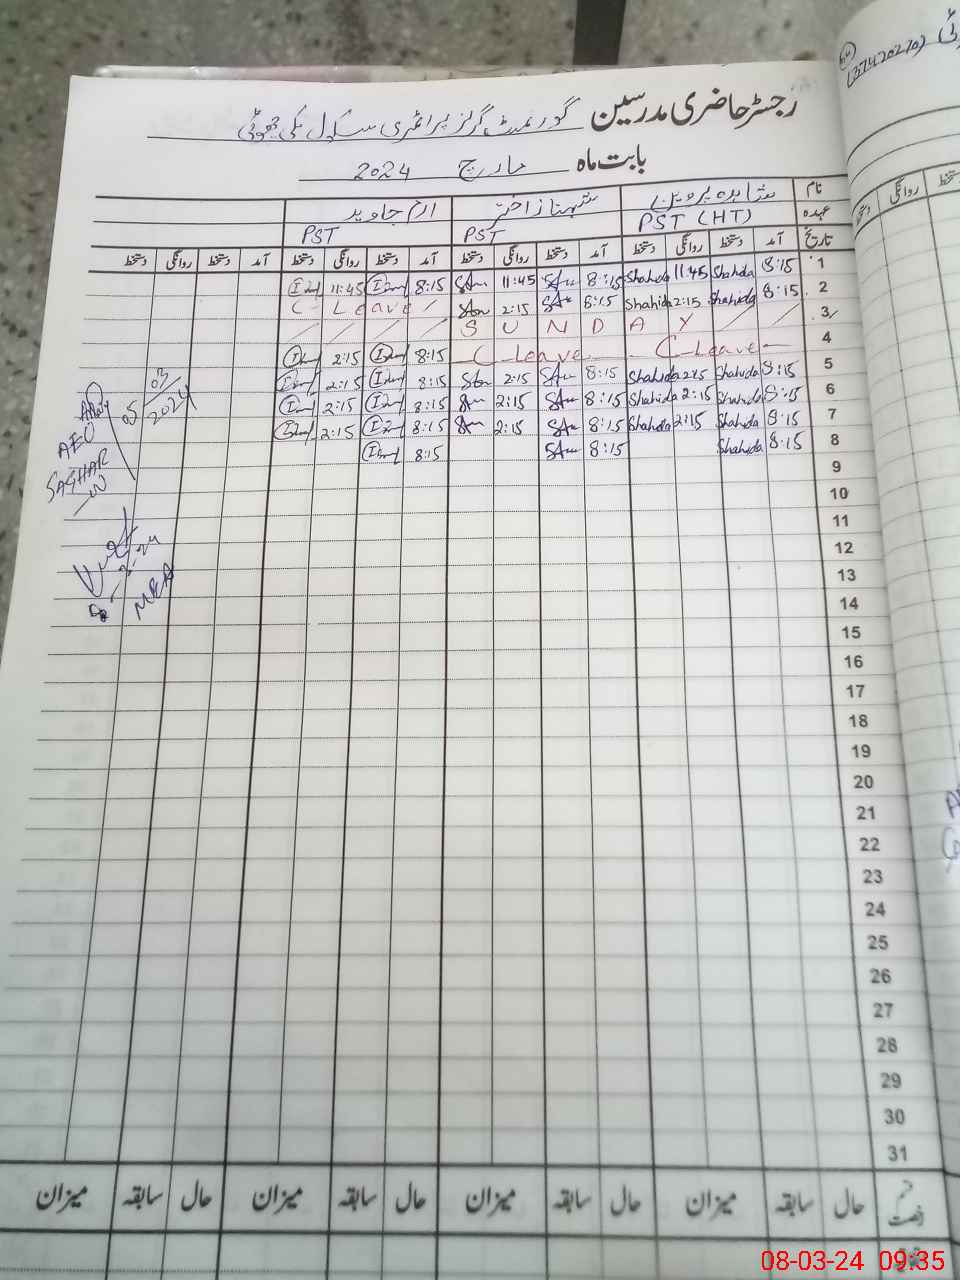 رجسٹر حاضری مدرسین گورنمنٹ گرلز پرائمری سکول
بابت ماہ مارچ 2024
نام شاہدہ پروین شہناز اختر ارم جاوید
عہدہ PST (HT) PST PST
تاریخ آمد دستخط روانگی دستخط آمد دستخط روانگی دستخط آمد دستخط روانگی دستخط آمد دستخط روانگی دستخط
1 8:15 Shahida 11:45 Shahida 8:15 11:45 8:15 11:45
2 8:15 Shahida 2:15 Shahida 8:15 2:15 C - Leave
3 S U N D A Y
4 C-Leave C-Leave 8:15 2:15
5 8:15 Shahida 2:15 Shahida 8:15 2:15 8:15 2:15
6 8:15 Shahida 2:15 Shahida 8:15 2:15 8:15 2:15
7 8:15 Shahida 2:15 Shahida 8:15 2:15 8:15 2:15
8 8:15 Shahida 8:15 8:15
9
10
11
12
13
14
15
16
17
18
19
20
21
22
23
24
25
26
27
28
29
30
31
05/03/2024
AEO
SAGHAR
MEA
حال سابقہ میزان حال سابقہ میزان حال سابقہ میزان حال سابقہ میزان
روانگی
08-03-24 09:35